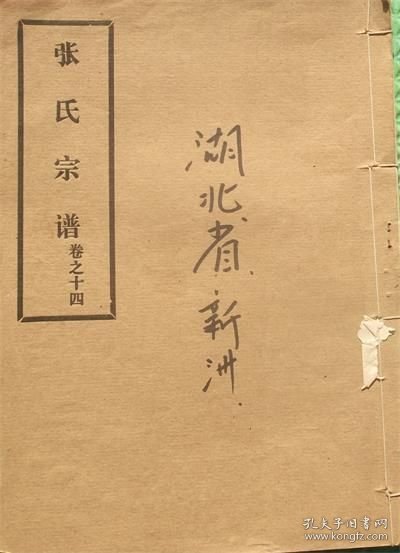 张氏宗谱
卷之十四
湖北省新洲
孔夫子旧书网
www.kongfz.com